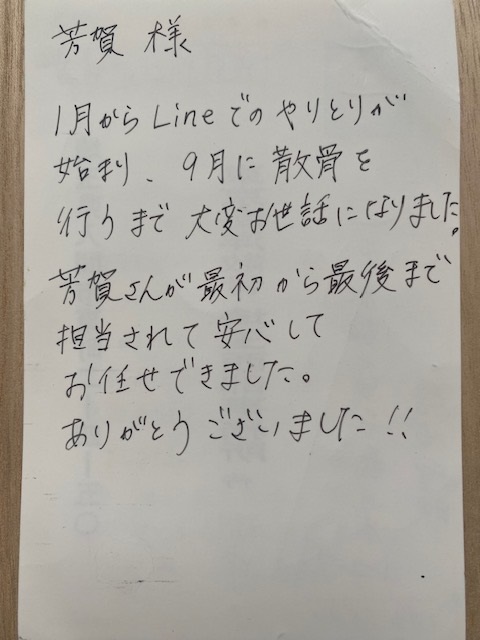 芳賀 様
1月から Line でのやりとりが
始まり、9月に散骨を
行うまで 大変お世話になりました。
芳賀さんが最初から最後まで
担当されて安心して
お任せできました。
ありがとうございました!!